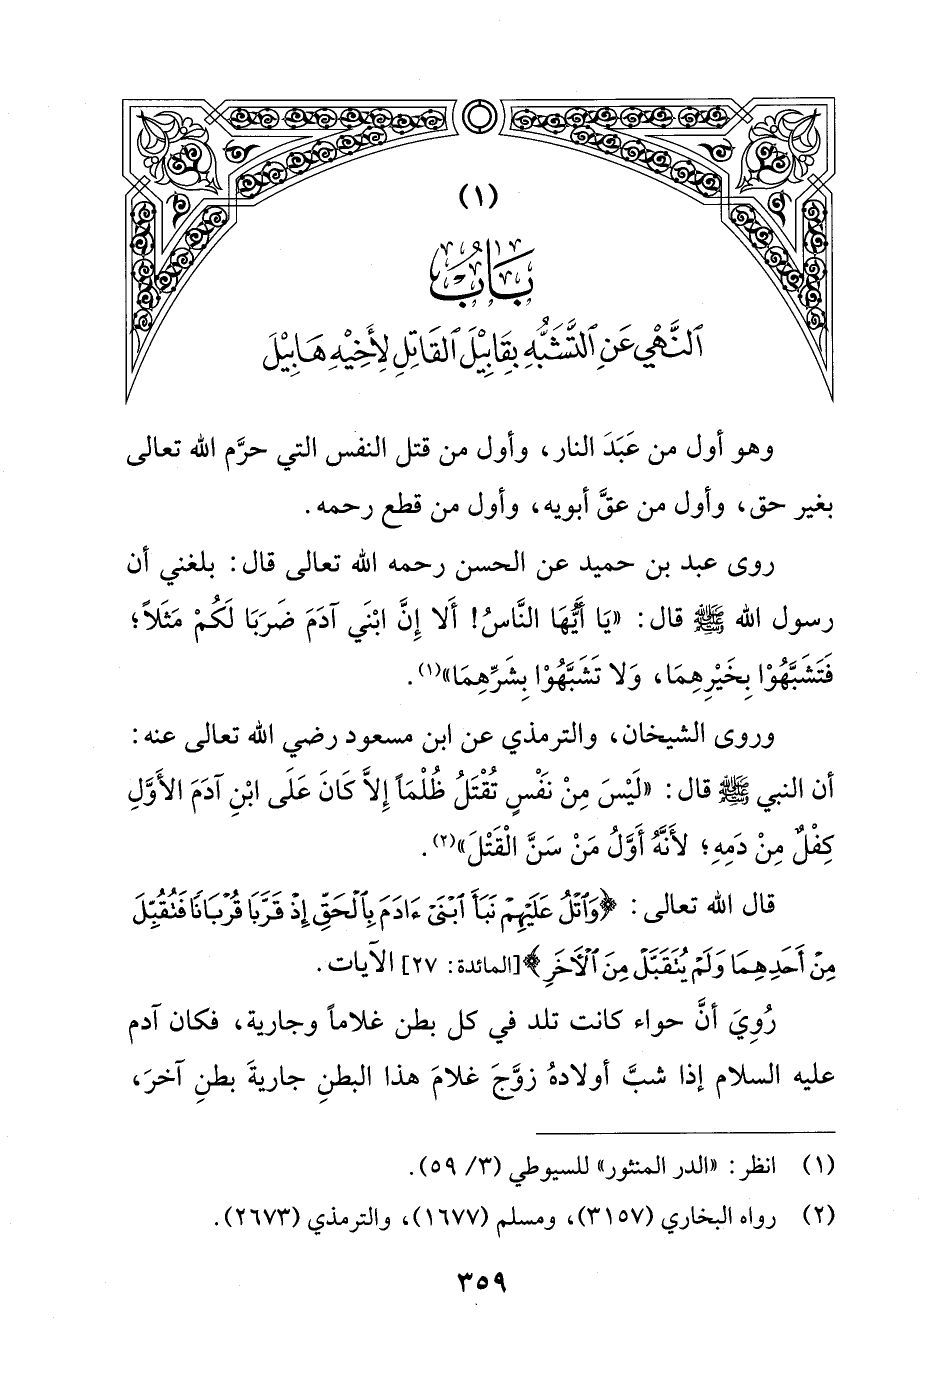 (١)
بَابُ
اَلنَّهْيِ عَنِ التَّشَبُّهِ بِقَابِيْلَ القَاتِلِ لِأَخِيْهِ هَابِيْلَ
وهو أول من عَبَدَ النار، وأول من قتل النفس التي حرَّم الله تعالى
بغير حق، وأول من عقَّ أبويه، وأول من قطع رحمه.
روى عبد بن حميد عن الحسن رحمه الله تعالى قال: بلغني أن
رسول الله ﷺ قال: «يَا أَيُّهَا النَّاسُ! أَلا إِنَّ ابْنَي آدَمَ ضَرَبَا لَكُمْ مَثَلاً؛
فَتَشَبَّهُوْا بِخَيْرِهِمَا، وَلا تَشَبَّهُوْا بِشَرِّهِمَا»(١).
وروى الشيخان، والترمذي عن ابن مسعود رضي الله تعالى عنه:
أن النبي ﷺ قال: «لَيْسَ مِنْ نَفْسٍ تُقْتَلُ ظُلْمَاً إِلاَّ كَانَ عَلَى ابْنِ آدَمَ الأَوَّلِ
كِفْلٌ مِنْ دَمِهِ؛ لأَنَّهُ أَوَّلُ مَنْ سَنَّ الْقَتْلَ»(٢).
قال الله تعالى: ﴿وَٱتْلُ عَلَيْهِمْ نَبَأَ ٱبْنَىْ ءَادَمَ بِٱلْحَقِّ إِذْ قَرَّبَا قُرْبَانًا فَتُقُبِّلَ
مِنْ أَحَدِهِمَا وَلَمْ يُتَقَبَّلْ مِنَ ٱلْأَخَرِ﴾ [المائدة: ٢٧] الآيات.
رُوِيَ أنَّ حواء كانت تلد في كل بطن غلاماً وجارية، فكان آدم
عليه السلام إذا شبَّ أولادهُ زوَّجَ غلامَ هذا البطنِ جاريةَ بطنٍ آخرَ،
(١) انظر: «الدر المنثور» للسيوطي (٣/ ٥٩).
(٢) رواه البخاري (٣١٥٧)، ومسلم (١٦٧٧)، والترمذي (٢٦٧٣).
٣٥٩